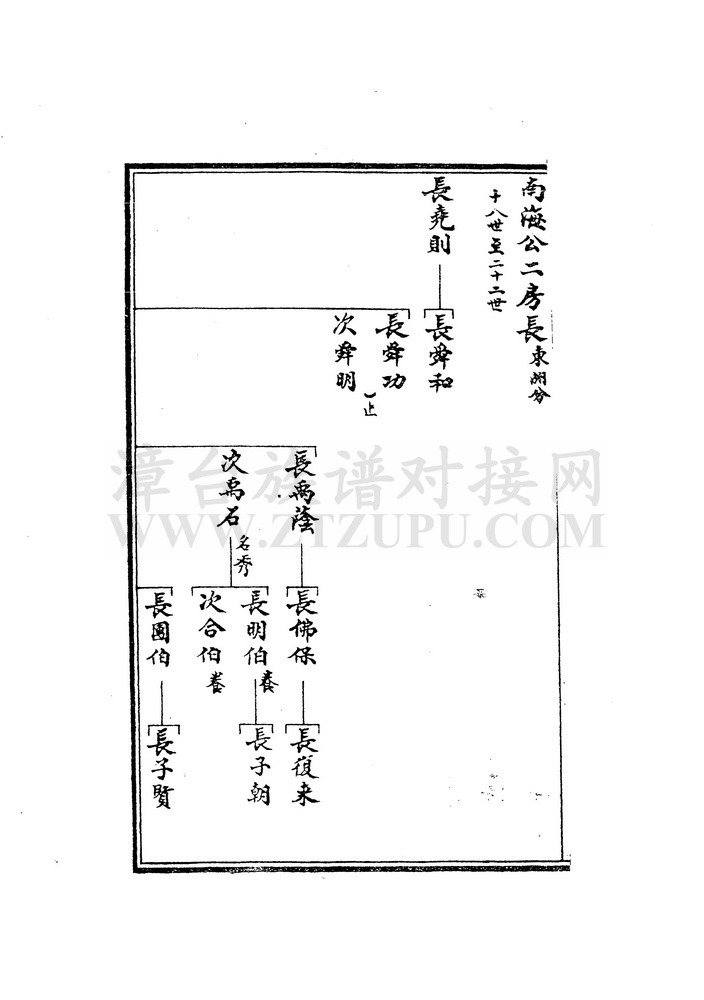 南海公二房長東湖分
十八世至二十二世
長堯則
長舜和
長舜功
次舜明
止
長禹蔭
次禹石
名秀
長佛保
長明伯養
次合伯養
長圖伯
長復来
長子朝
長子賢
漳台族谱对接网
WWW.ZTZUPU.COM